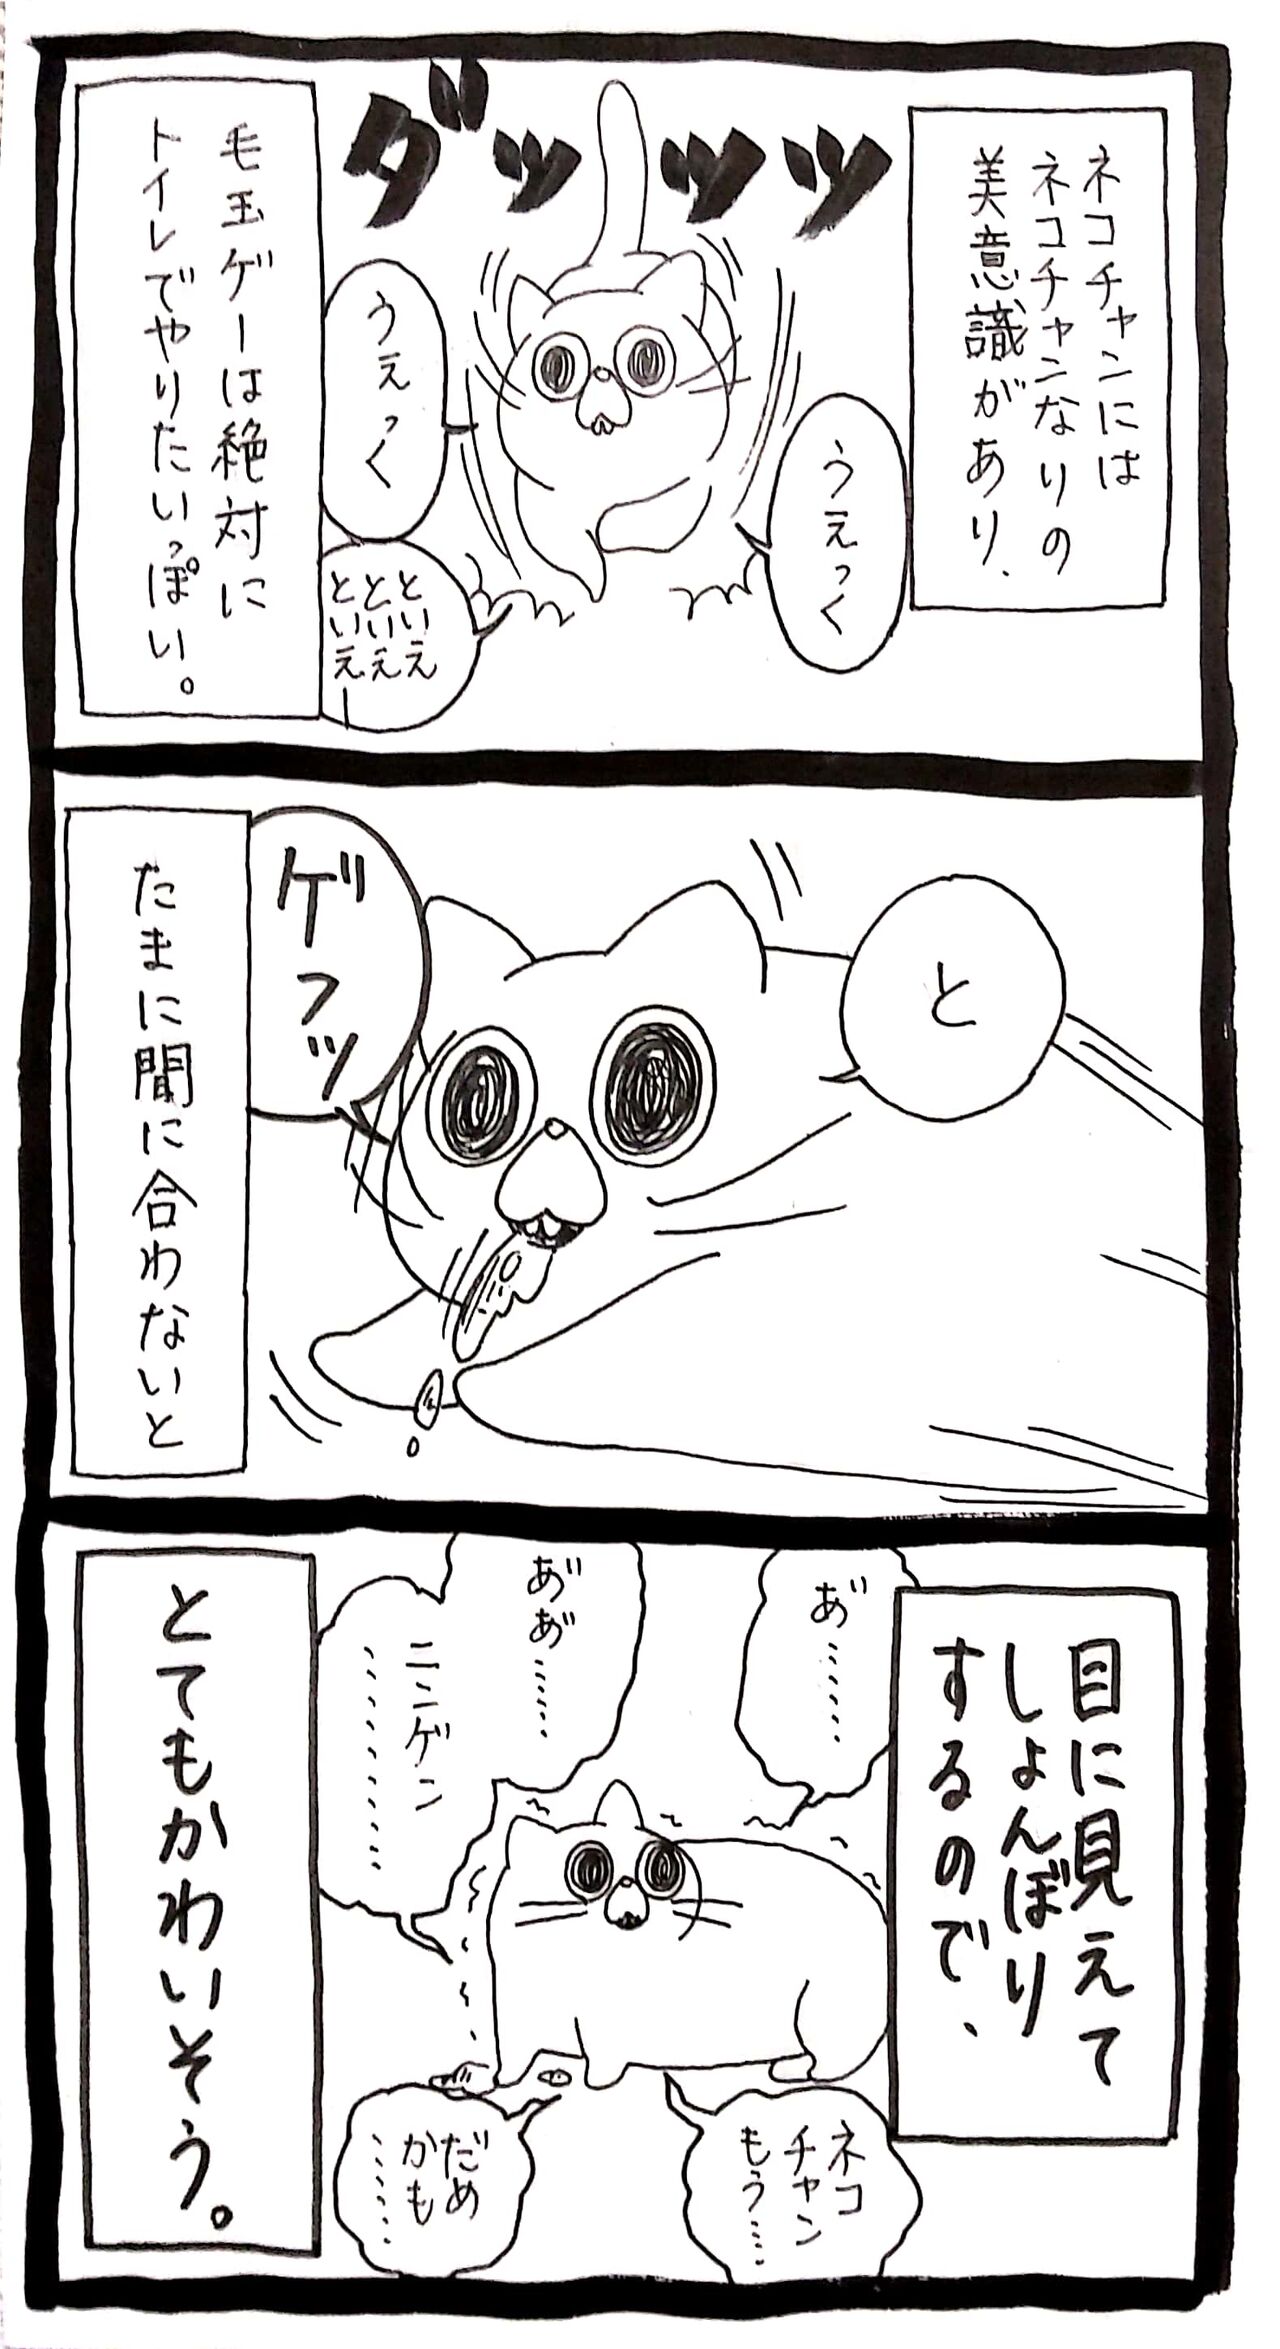 ネコチャンには
ネコチャンなりの
美意識があり、
ダッッッ
うぇっく
うぇっく
といえ
といえ
といえー
毛玉ゲーは絶対に
トイレでやりたいっぽい。
と
ゲフッ
たまに間に合わないと
目に見えて
しょんぼり
するので、
あ゛……
あ゛あ゛……
ニンゲン
…………
ネコ
チャン
もう……
だめ
かも
……
とてもかわいそう。